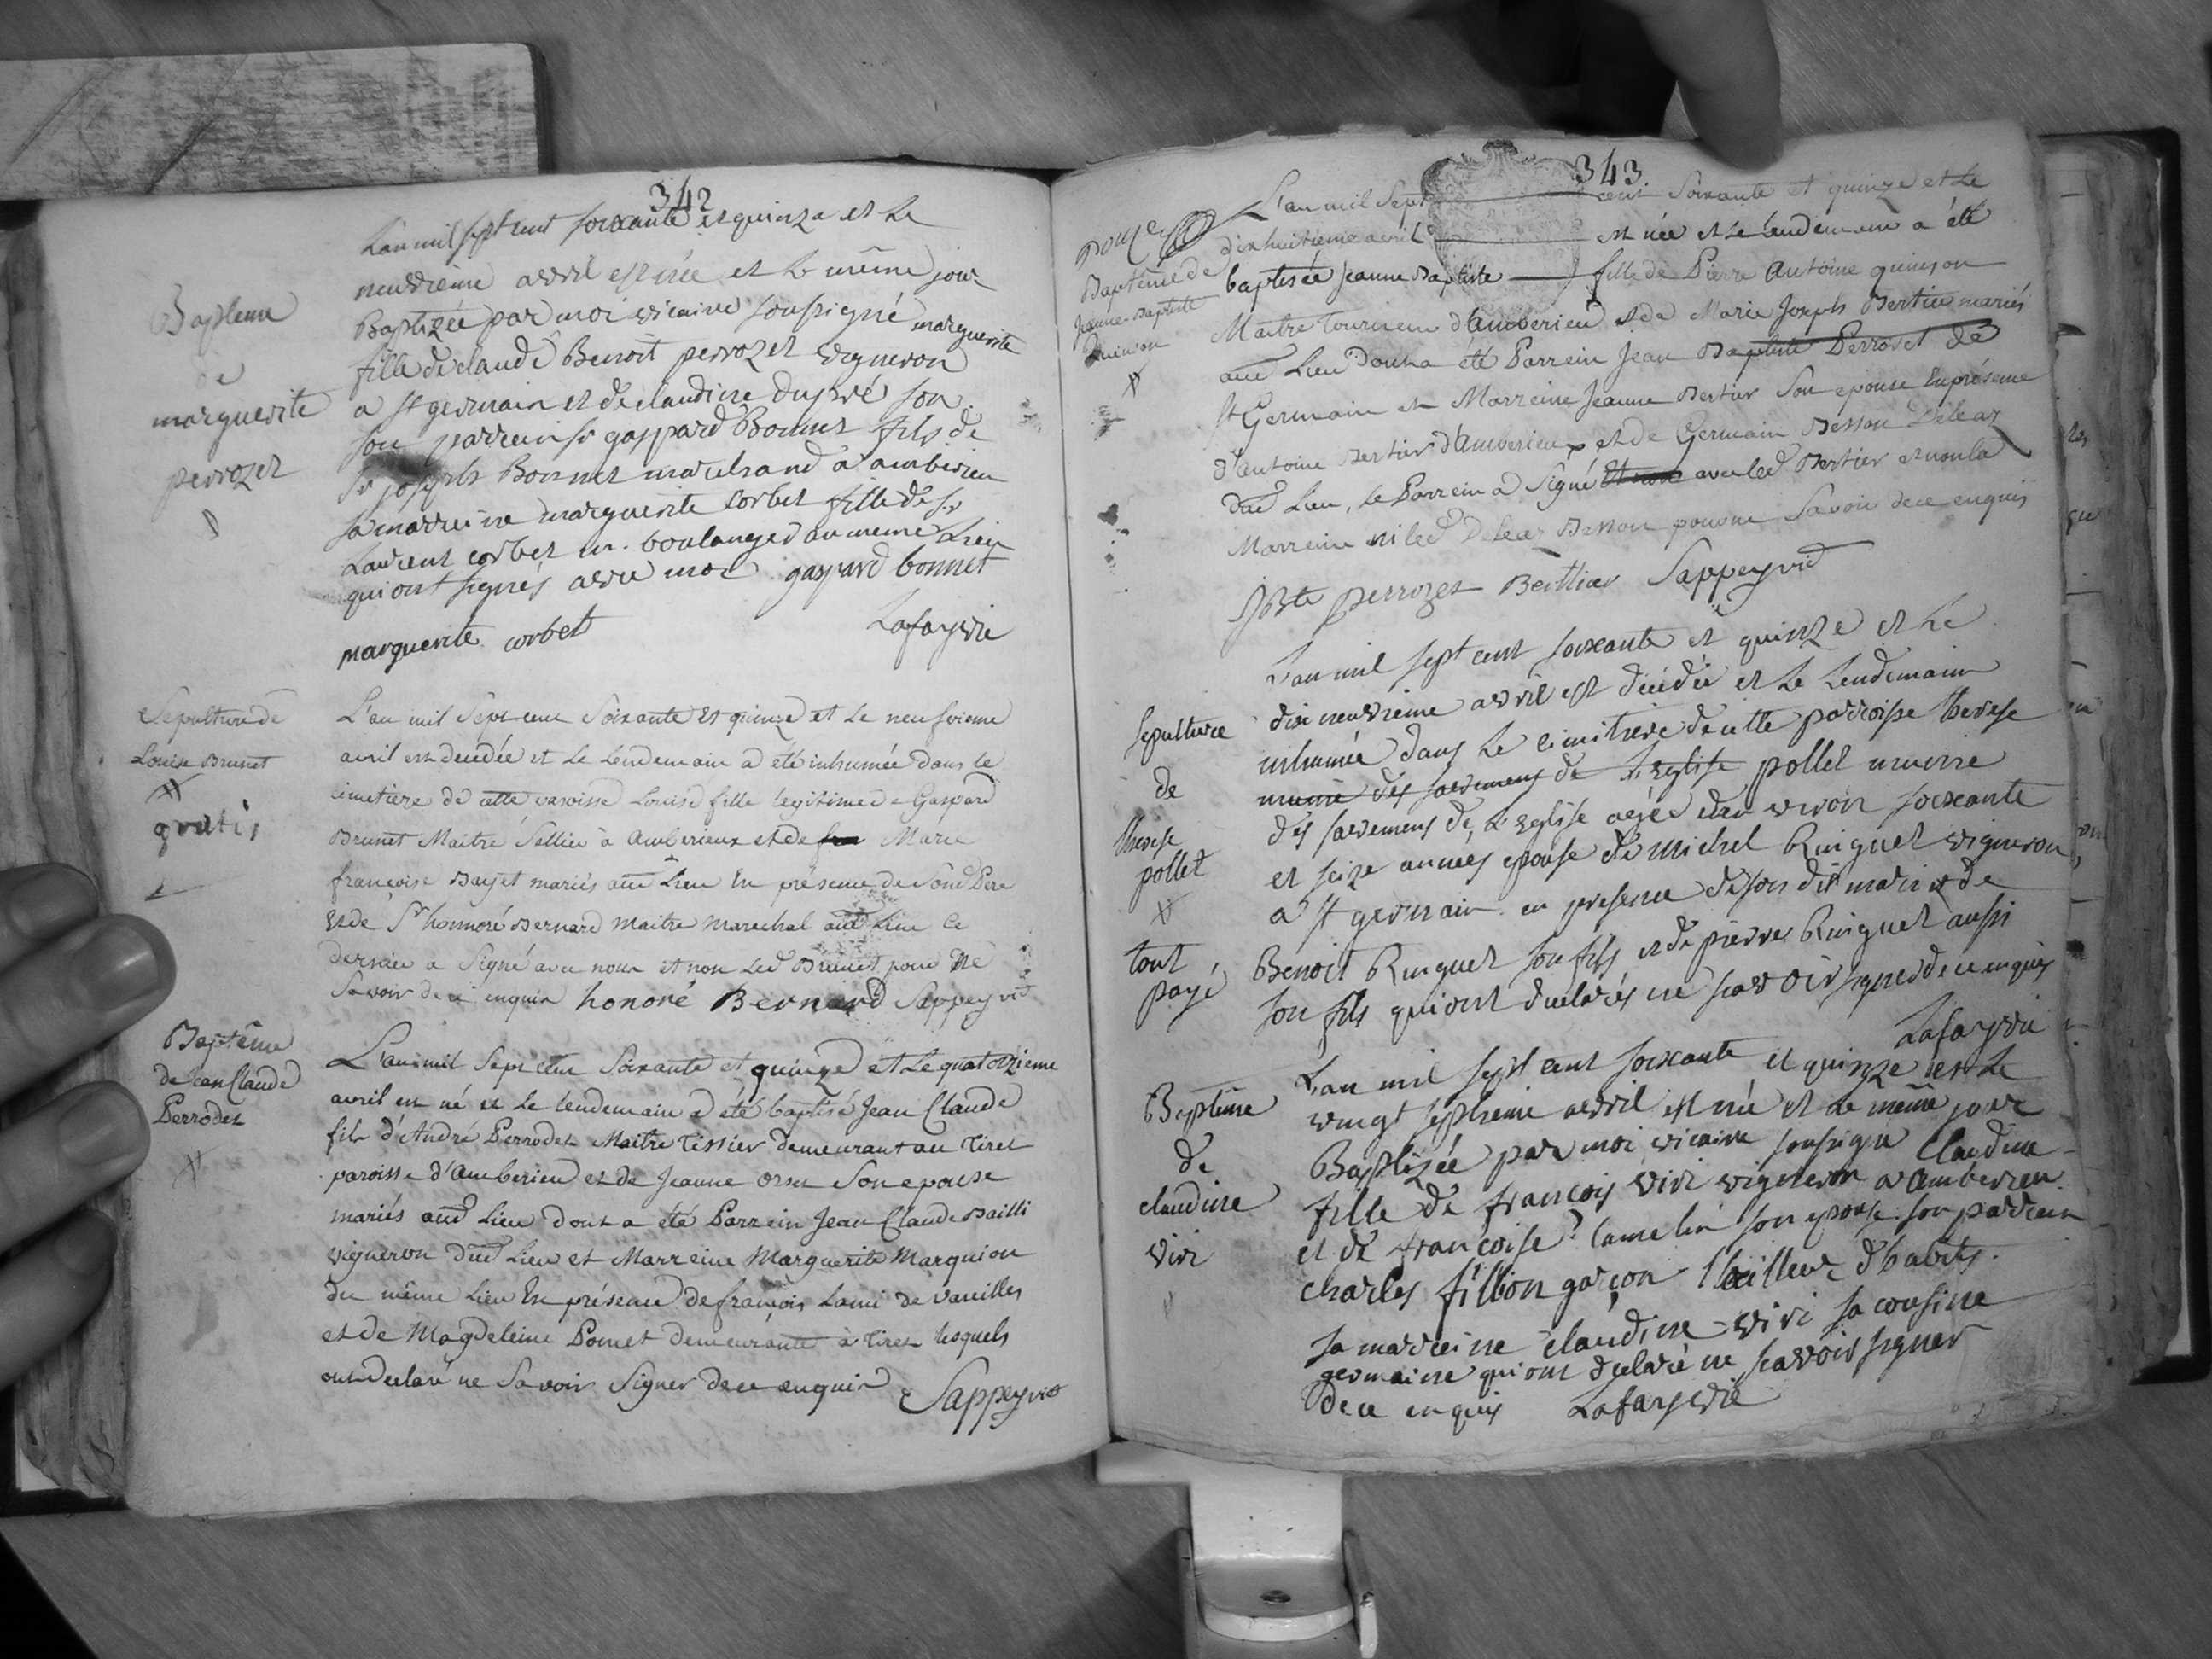 342
L'an mil sept cent soixante et quinze et le
neuvieme avvril est née et le même jour
Baptizée par moi vicaire soussigné marguerite
fille de claude Benoit perrozet vigneron
a st germain et de claudine dupré son
son parrein sr gaspard Bonnet fils de
sr joseph Bonnet marchand a ambérieu
sa marreine marguerite corbet fille de sr
Laurent corbet m. boulanger au meme Lieu
qui ont signés avec moi gaspard bonnet
marguerite corbet Lafay vic
Bapteme
de
marguerite
perrozet
Sepulture de
Louise Brunet
gratis
L'an mil Sept cent Soixante et quinze et le neufvieme
avril est decedée et le Lendemain a été inhumée dans le
cimetiere de cette paroisse Louise fille legitime de Gaspard
Brunet Maitre Sellier à Amberieux et de Marie
françoise Bayet mariés aud Lieu En présence de Sond Pere
Et de Sr honnoré Bernard Maitre Marechal aud Lieu Ce
dernier a Signé avec nous et non Led Brunet pour Ne
Savoir de ce enquis honoré Bernard Sappey vic
Baptême
de Jean Claude
Perrodet
L'an mil Sept cent Soixante et quinze et Le quatorzieme
avril est né et le lendemain a été baptisé Jean Claude
fils d'André Perrodet Maitre Tissier demeurant au Tiret
paroisse d'Amberieu et de Jeanne Orset Son epouse
mariés aud Lieu dont a été Parrein Jean Claude Bailli
vigneron dud Lieu et Marreine Marguerite Marquion
du même Lieu En présence de françois Lami de Vareilles
et de Magdeleine Pomet demeurante à Tiret lesquels
ont declaré ne Savoir Signer de ce enquis Sappey vic
343.
L'an mil Sept cent Soixante et quinze et Le
dix huitieme avril est née et Le lendemain a été
baptisée Jeanne Baptiste fille de Pierre Antoine quinson
Maitre Tourneur d'Amberieu et de Marie Joseph Bertier mariés
aud Lieu dont a été Parrein Jean Baptiste Perroset de
St Germain et Marreine Jeanne Bertier Son epouse En présence
d'antoine Bertier d'Amberieux et de Germain Besson Deleaz
dud Lieu, Le Parrein a Signé avec led Bertier et non la
Marreine ni led Deleaz Besson pour ne Savoir de ce enquis
JBte perrozet Berthier Sappey vic
Baptême de
Jeanne-Baptiste
Quinson
L'an mil sept cent soixante et quinze et le
dix neuvieme avvril est décédée et le lendemain
inhumée dans le cimitiere de cette parroisse therese
munie des sacremens de l'Eglise pollet munie
des sacremens de L'Eglise agée d'environ soixante
et seize années epouse de michel Ringuet vigneron
a st germain en presence de son dit mari et de
Benoit Ringuet son fils et de pierre Ringuet aussi
son fils qui ont declarés ne scavoir signer de ce enquis
Lafay vic
Sepulture
de
therese
pollet
tout
payé
L'an mil sept cent soixante et quinze et le
vingt septieme avvril est née et le même jour
Baptizée par moi vicaire soussigné Claudine
fille de françois vivi vigneron a amberieu
et de françoise tamelin son epouse son parrein
charles fillion garçon tailleur d'habits.
sa marreine claudine vivi sa cousine
germaine qui ont declaré ne scavoir signer
de ce enquis Lafay vic
Baptême
de
claudine
vivi